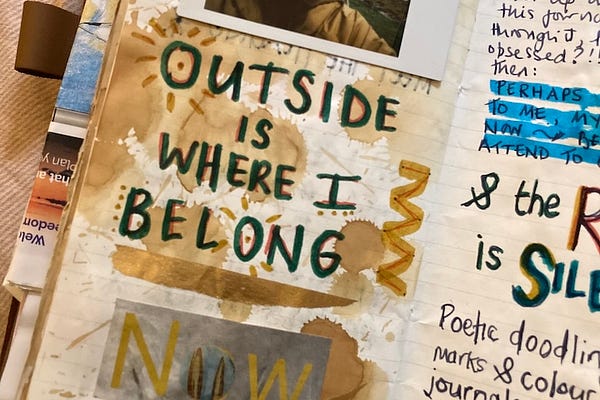 OUTSIDE
IS
WHERE I
BELONG
NOW
this journ
through it
obsessed?!!
then:
PERHAPS
TO ME, MY
NOW ~ BE
ATTEND TO
& the R
is SILE
Poetic doodlin
marks & colour
journal